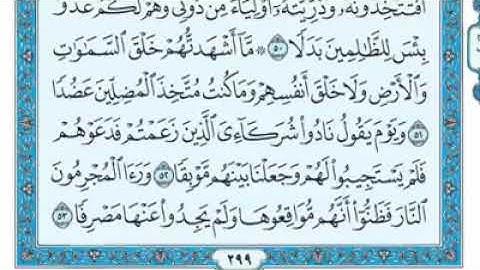 أَفَتَتَّخِذُونَهُۥ وَذُرِّيَّتَهُۥٓ أَوْلِيَآءَ مِن دُونِى وَهُمْ لَكُمْ عَدُوٌّۢ
بِئْسَ لِلظَّٰلِمِينَ بَدَلًا ٥٠ ۞ مَّآ أَشْهَدتُّهُمْ خَلْقَ ٱلسَّمَٰوَٰتِ
وَٱلْأَرْضِ وَلَا خَلْقَ أَنفُسِهِمْ وَمَا كُنتُ مُتَّخِذَ ٱلْمُضِلِّينَ عَضُدًا
٥١ وَيَوْمَ يَقُولُ نَادُوا۟ شُرَكَآءِىَ ٱلَّذِينَ زَعَمْتُمْ فَدَعَوْهُمْ
فَلَمْ يَسْتَجِيبُوا۟ لَهُمْ وَجَعَلْنَا بَيْنَهُم مَّوْبِقًا ٥٢ وَرَءَا ٱلْمُجْرِمُونَ
ٱلنَّارَ فَظَنُّوٓا۟ أَنَّهُم مُّوَاقِعُوهَا وَلَمْ يَجِدُوا۟ عَنْهَا مَصْرِفًا ٥٣
٢٩٩